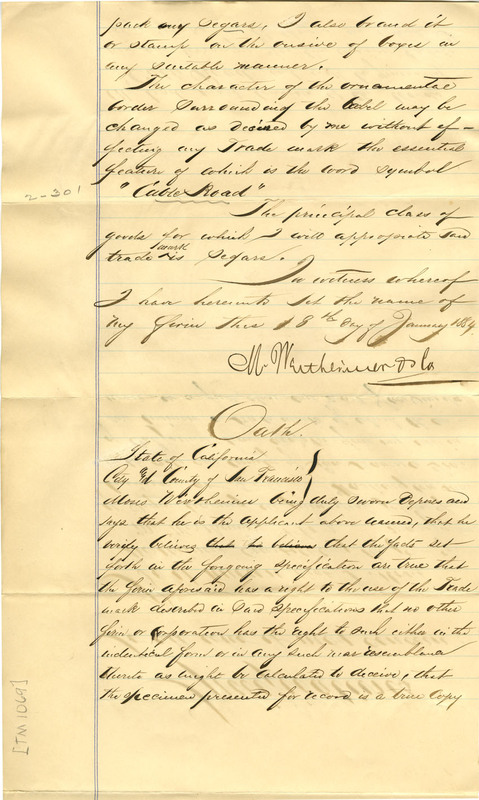 pack my segars, I also brand it
or stamp on the ousive of boxes in
any suitable manner.
The character of the ornamental
border surrounding the label may be
changed as desired by me without ef-
fecting my Trade mark the essential
feature of which is the word symbol
"Cable Road"
The principal class of
goods for which I will appropriate said
trade mark is segars.
In witness whereof
I have hereunto set the name of
my firm this 18th day of January 1884.
M. Wertheimer & Co
Oath.
State of California
City & County of San Francisco
Moses Wertheimer being duly sworn deposes and
says that he is the applicant above named, that he
verily believes that he believes that the facts set
forth in the foregoing specification are true that
the firm aforesaid has a right to the use of the Trade
mark described in said specifications that no other
firm or corporation has the right to such either in the
indentical form or in any such near resemblance
thereto as might be calculated to deceive, that
the specimen presented for record is a true copy
2-301
[TM 1069]